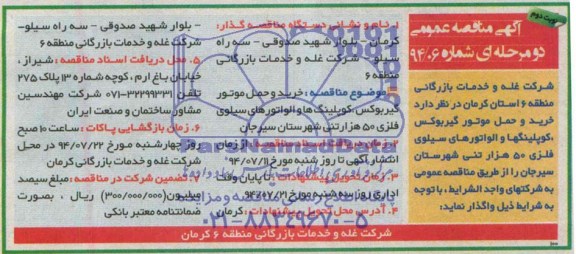 نوبت دوم
آگهی مناقصه عمومی
دو مرحله ای شماره ۹۴/۰۶
شرکت غله و خدمات بازرگانی
منطقه ۶ استان کرمان در نظر دارد
خرید و حمل موتور گیربوکس
،کوپلینگها و الواتورهای سیلوی
فلزی ۵۰ هزار تنی شهرستان
سیرجان را از طریق مناقصه عمومی
به شرکتهای واجد الشرایط ، با توجه
به شرایط ذیل واگذار نماید:
۱. نام و نشانی دستگاه مناقصه گذار:
کرمان – بلوار شهید صدوقی – سه راه
سیلو – شرکت غله و خدمات بازرگانی
منطقه ۶
موضوع مناقصه : خرید و حمل موتور
گیربوکس ،کوپلینگ ها و الواتورهای سیلوی
فلزی ۵۰ هزار تنی شهرستان سیرجان
از زمان
انتشار آگهی تا روز شنبه مورخ ۹۴/۰۷/۱۱
۳. زمان تحویل پیشنهادات : تا پایان وقت
اداری روز سه شنبه مورخ ۹۴/۰۷/۲۱
۴. آدرس محل تحویل پیشنهادات : کرمان
– بلوار شهید صدوقی – سه راه سیلو–
شرکت غله و خدمات بازرگانی منطقه ۶
۵. محل دریافت اسناد مناقصه : شیراز ،
خیابان باغ ارم ، کوچه شماره ۱۳ پلاک ۲۷۵
تلفن ۳۲۲۹۹۲۳۱-۰۷۱ شرکت مهندسین
مشاور ساختمان و صنعت ایران
۶. زمان بازگشایی پاکات : ساعت ۱۰ صبح
روز چهارشنبه مورخ ۹۴/۰۷/۲۲ در محل
شرکت غله و خدمات بازرگانی کرمان
۷. تضمین شرکت در مناقصه : مبلغ سیصد
میلیون (۳۰۰/۰۰۰/۰۰۰) ریال ، بصورت
ضمانتنامه معتبر بانکی
شرکت غله و خدمات بازرگانی منطقه ۶ کرمان
ParsNamadData
۰۲۱-۸۸۳۴۹۶۷۰-۵